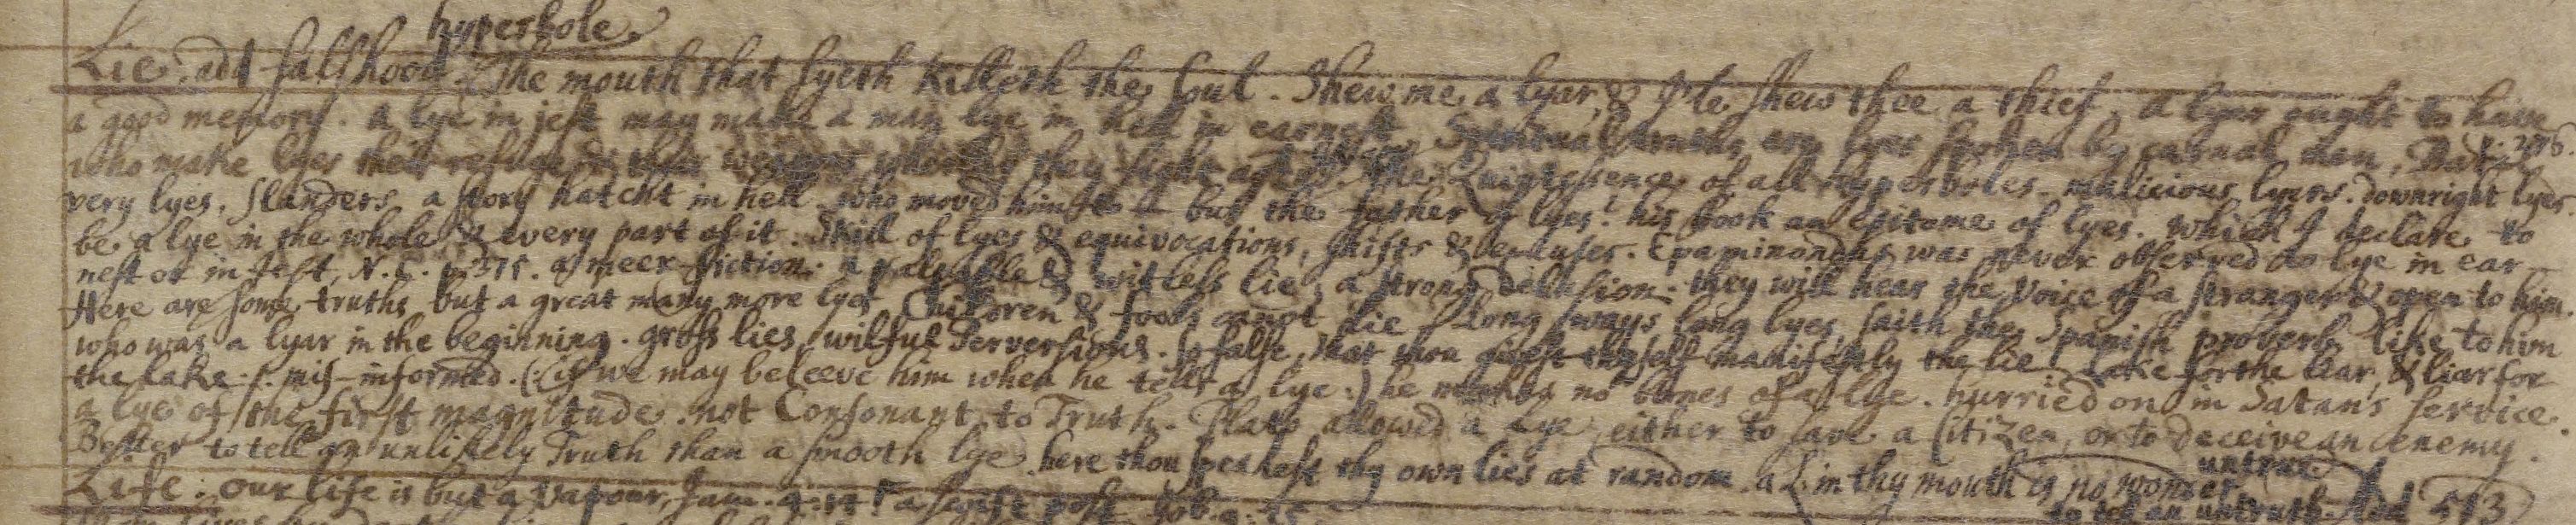 hyperbole.
Lie. add falshood. The mouth that lyeth killeth the Soul. Shew me a lyar, & I'le shew thee a thief. a lyer ought to have
a good memory. a lye in jest may make a man lye in hell in earnest. Spiritual truths are lyes spoken by carnal men, p. 276.
who make lyes their refuge & their weapons they fight The Quintessence of all Hyperboles. malicious lyers. downright lyes
very lyes. Slanders. a story hatcht in hell. who moved him to it but the father of lyes? his book an epitome of lyes. which I declare to
be a lye in the whole & every part of it. Skill of lyes & equivocations, shifts & excuses. Epaminondas was never observed to lye in ear
nest or in Jest, N. L. p. 375. a meer fiction. a palpable & witless lie, a strong delusion. they will hear the voice of a stranger & open to him.
Here are some truths but a great many more lyes. Children & fools cannot lie. Long ways, long lyes, saith the Spanish proverb. like to him
who was a lyar in the beginning. gross lies, wilful Perversions. so false, that thou givest thyself manifestly the lie. lake for the liar, & liar for
the lake. mis-informed. (: if we may beleeve him when he tells a lye :) he makes no bones of a lye. hurried on in Satan's service.
a lye of the first magnitude. not Consonant to Truth. Plato allowed a lye, either to save a Citizen, or to deceive an enemy.
Better to tell an unlikely Truth than a smooth lye. here thou speakest thy own lies at random. a L. in thy mouth is no wonder
untrue.
to tell an untruth. Add 513
Life. Our life is but a vapour, Jam. 4. 14. a swift post Job. 9. 25.